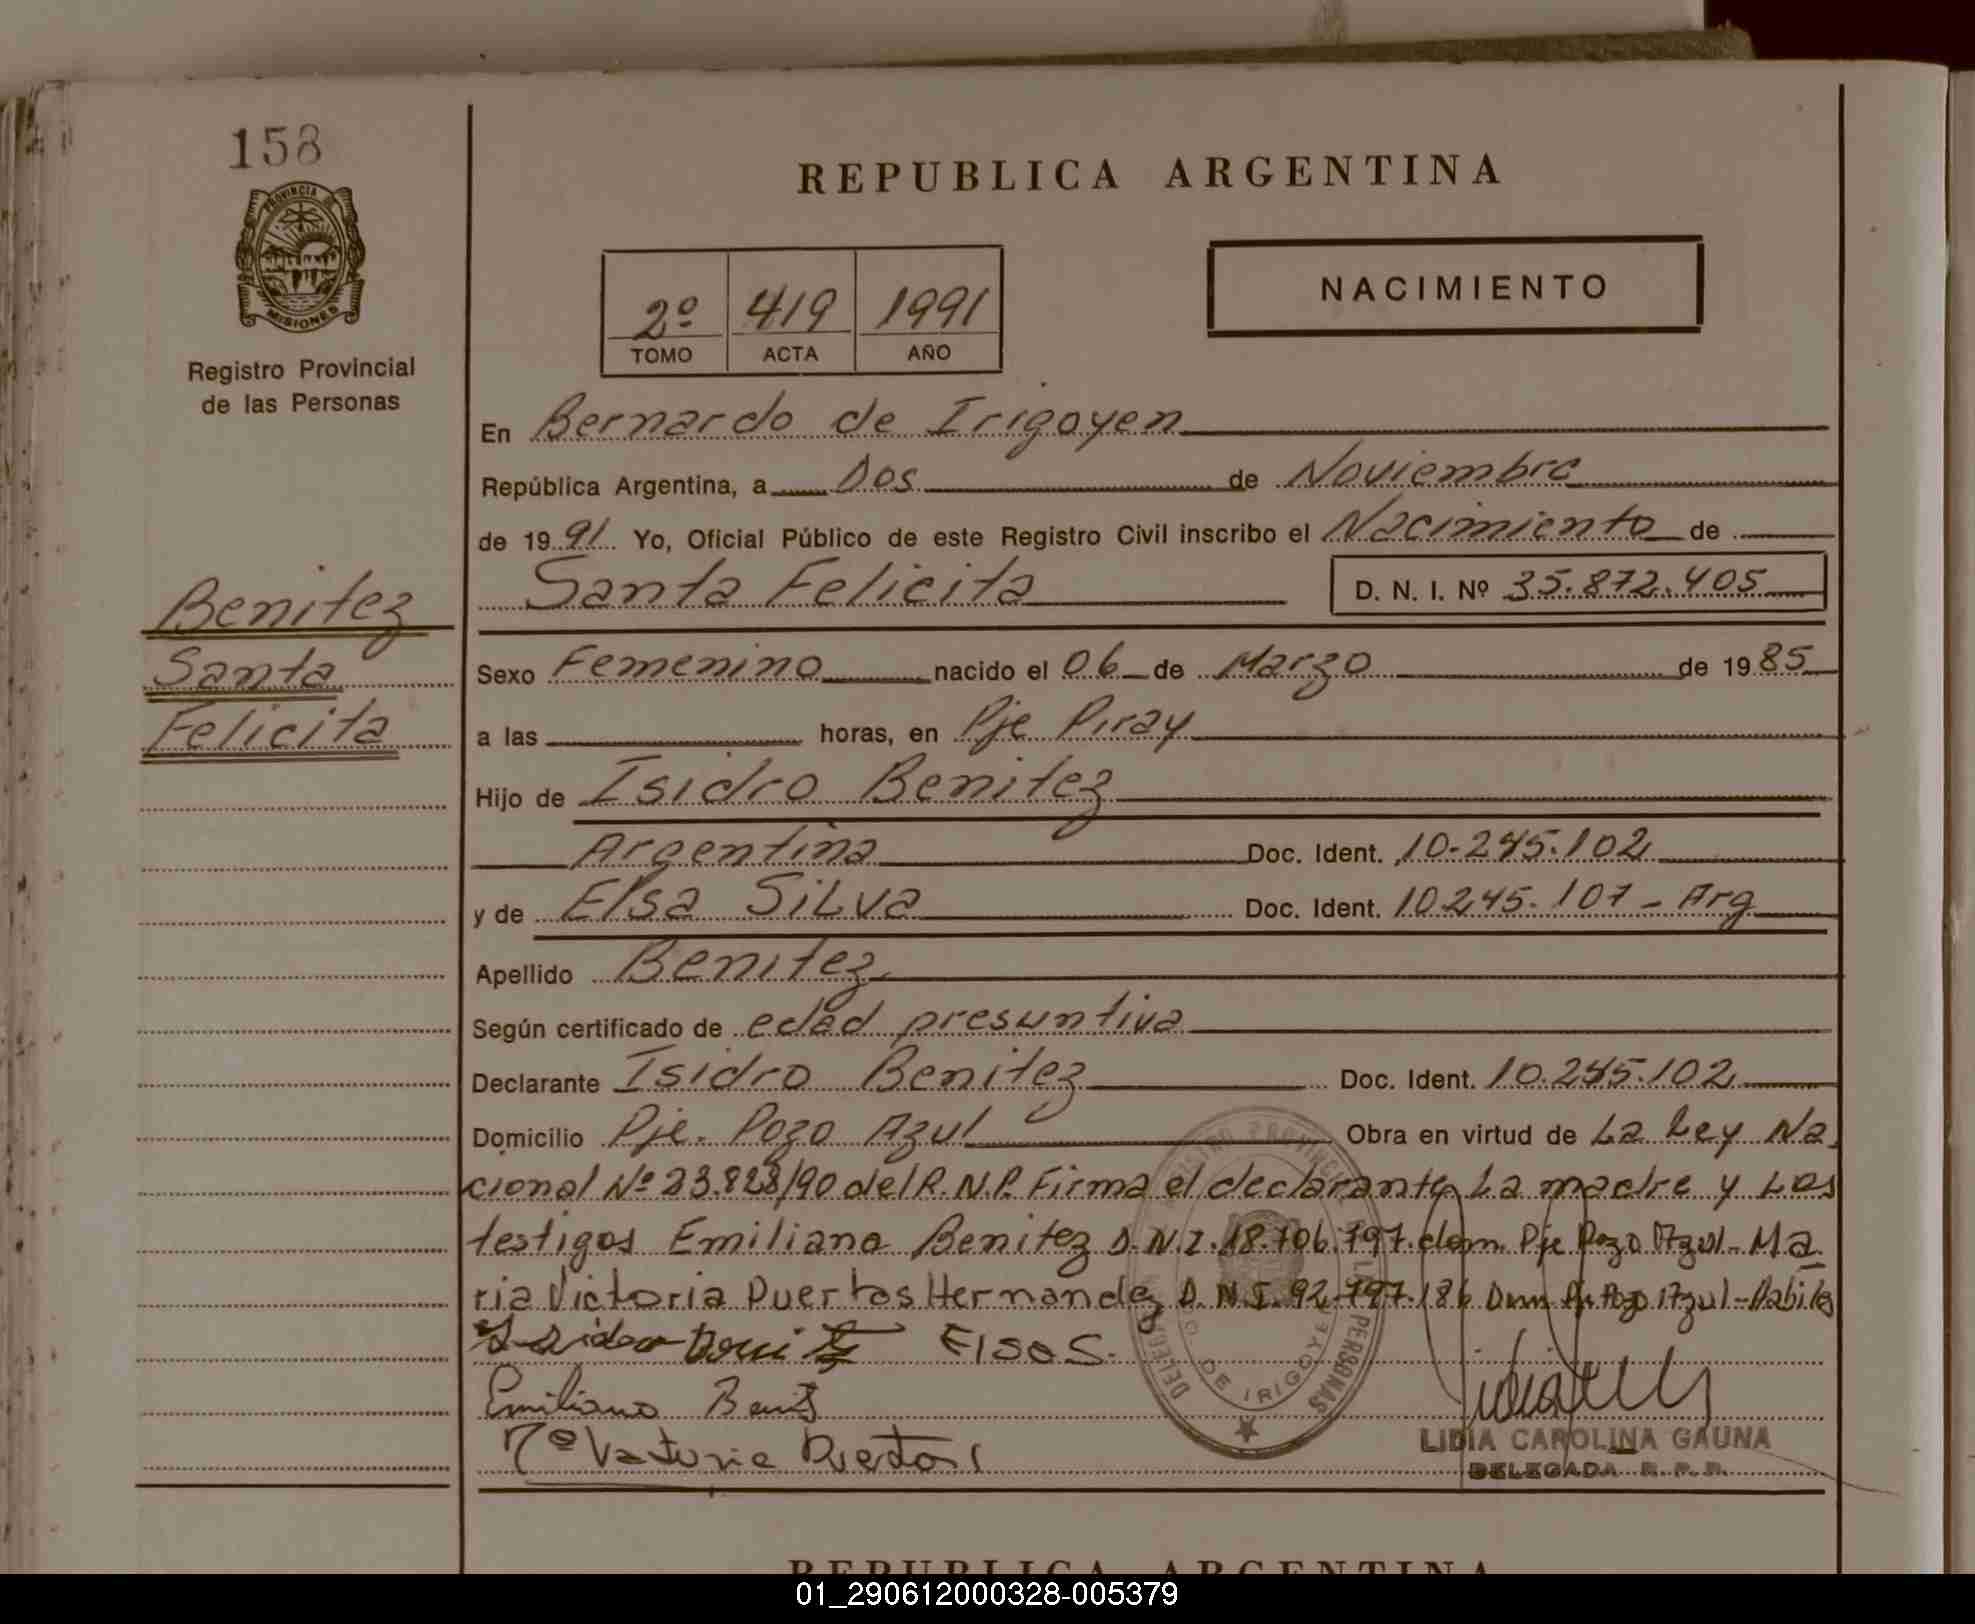 158
PROVINCIA DE
MISIONES
Registro Provincial
de las Personas
REPUBLICA ARGENTINA
2º 419 1991
TOMO ACTA AÑO
NACIMIENTO
En Bernardo de Irigoyen
República Argentina, a Dos de Noviembre
de 1991 Yo, Oficial Público de este Registro Civil inscribo el Nacimiento de
Santa Felicita D. N. I. Nº 35.872.405
Benitez
Santa
Felicita
Sexo Femenino nacido el 06 de Marzo de 1985
a las horas, en Pje Piray
Hijo de Isidro Benitez
Argentina Doc. Ident. 10.245.102
y de Elsa Silva Doc. Ident. 10.245.107 - Arg
Apellido Benitez
Según certificado de edad presuntiva
Declarante Isidro Benitez Doc. Ident. 10.245.102
Domicilio Pje. Pozo Azul Obra en virtud de La Ley Na
cional Nº 23.828/90 del R.N.P. Firma el declarante, La madre y Los
testigos Emiliano Benitez D.N.I. 18.706.797. dom. Pje Pozo Azul - Ma
ria Victoria Puertas Hernandez D.N.I. 92.797.186 Dom Pje Pozo Azul - Habiles
Elsa S.
Emiliano Benit
Mª Victoria Puertas
DE IRIGOYEN
LIDIA CAROLINA GAUNA
DELEGADA R. P. P.
REPUBLICA ARGENTINA
01_290612000328-005379